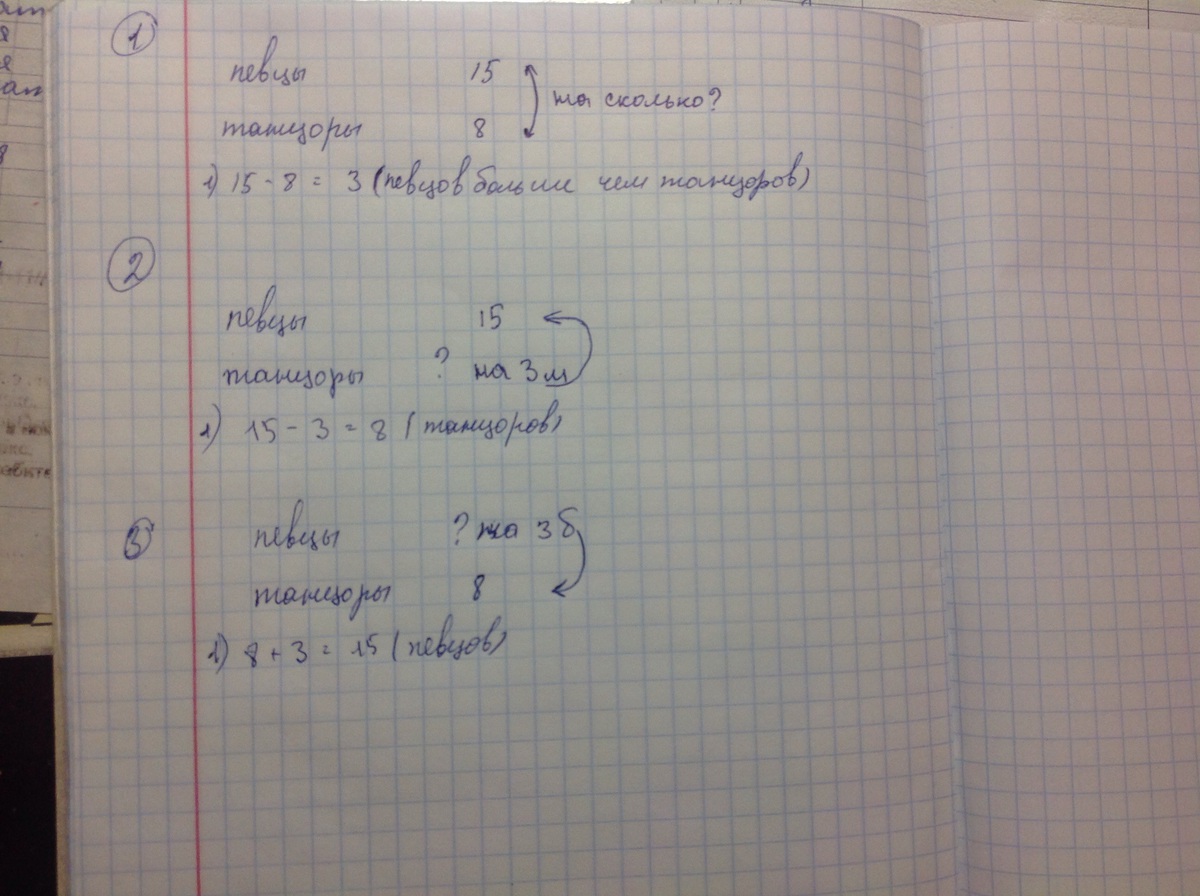 1
певцы 15
на сколько?
танцоры 8
1) 15 - 8 = 3 (певцов больше чем танцоров)
2
певцы 15
танцоры ? на 3 м
1) 15 - 3 = 8 (танцоров)
3
певцы ? на 3 б
танцоры 8
1) 8 + 3 = 15 (певцов)